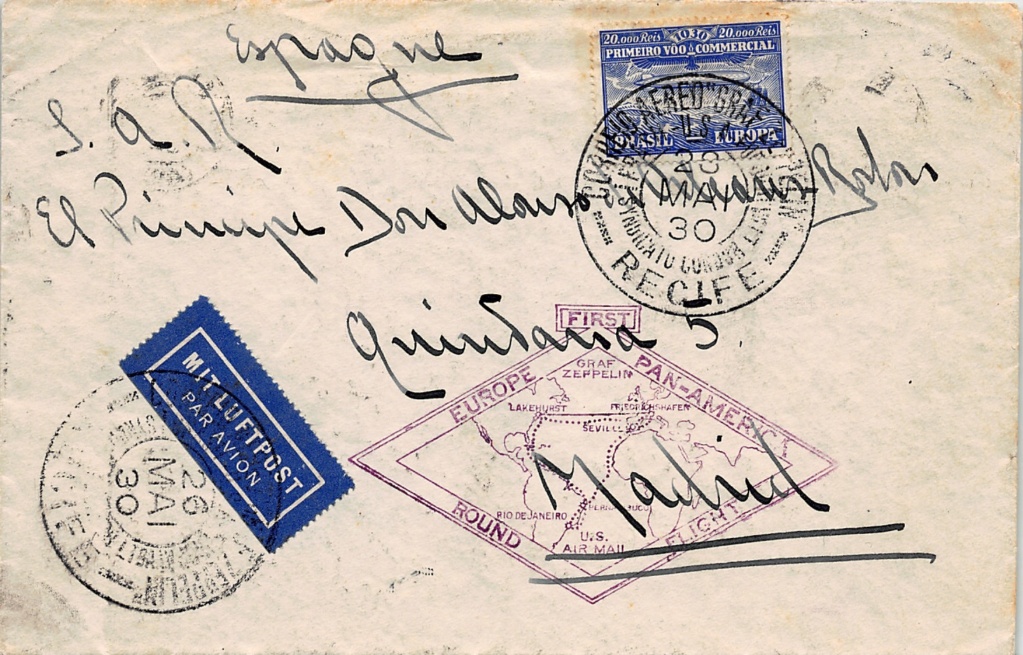 Espagne
20.000 Reis 1930 20.000 Reis
PRIMEIRO VÔO COMMERCIAL
BRASIL EUROPA
S. A. R.
El Principe Don Alonso de Orleans-Borbon
Quintana 5
Madrid
U.S.A
28
MAI
30
SYNDICATO CONDOR LTDA
RECIFE
MIT LUFTPOST
PAR AVION
26
MAI
30
FIRST
EUROPE PAN-AMERICA
ROUND FLIGHT
GRAF
ZEPPELIN
LAKEHURST FRIEDRICHSHAFEN
SEVILLE
PERNAMBUCO
RIO DE JANEIRO
U.S.
AIR MAIL